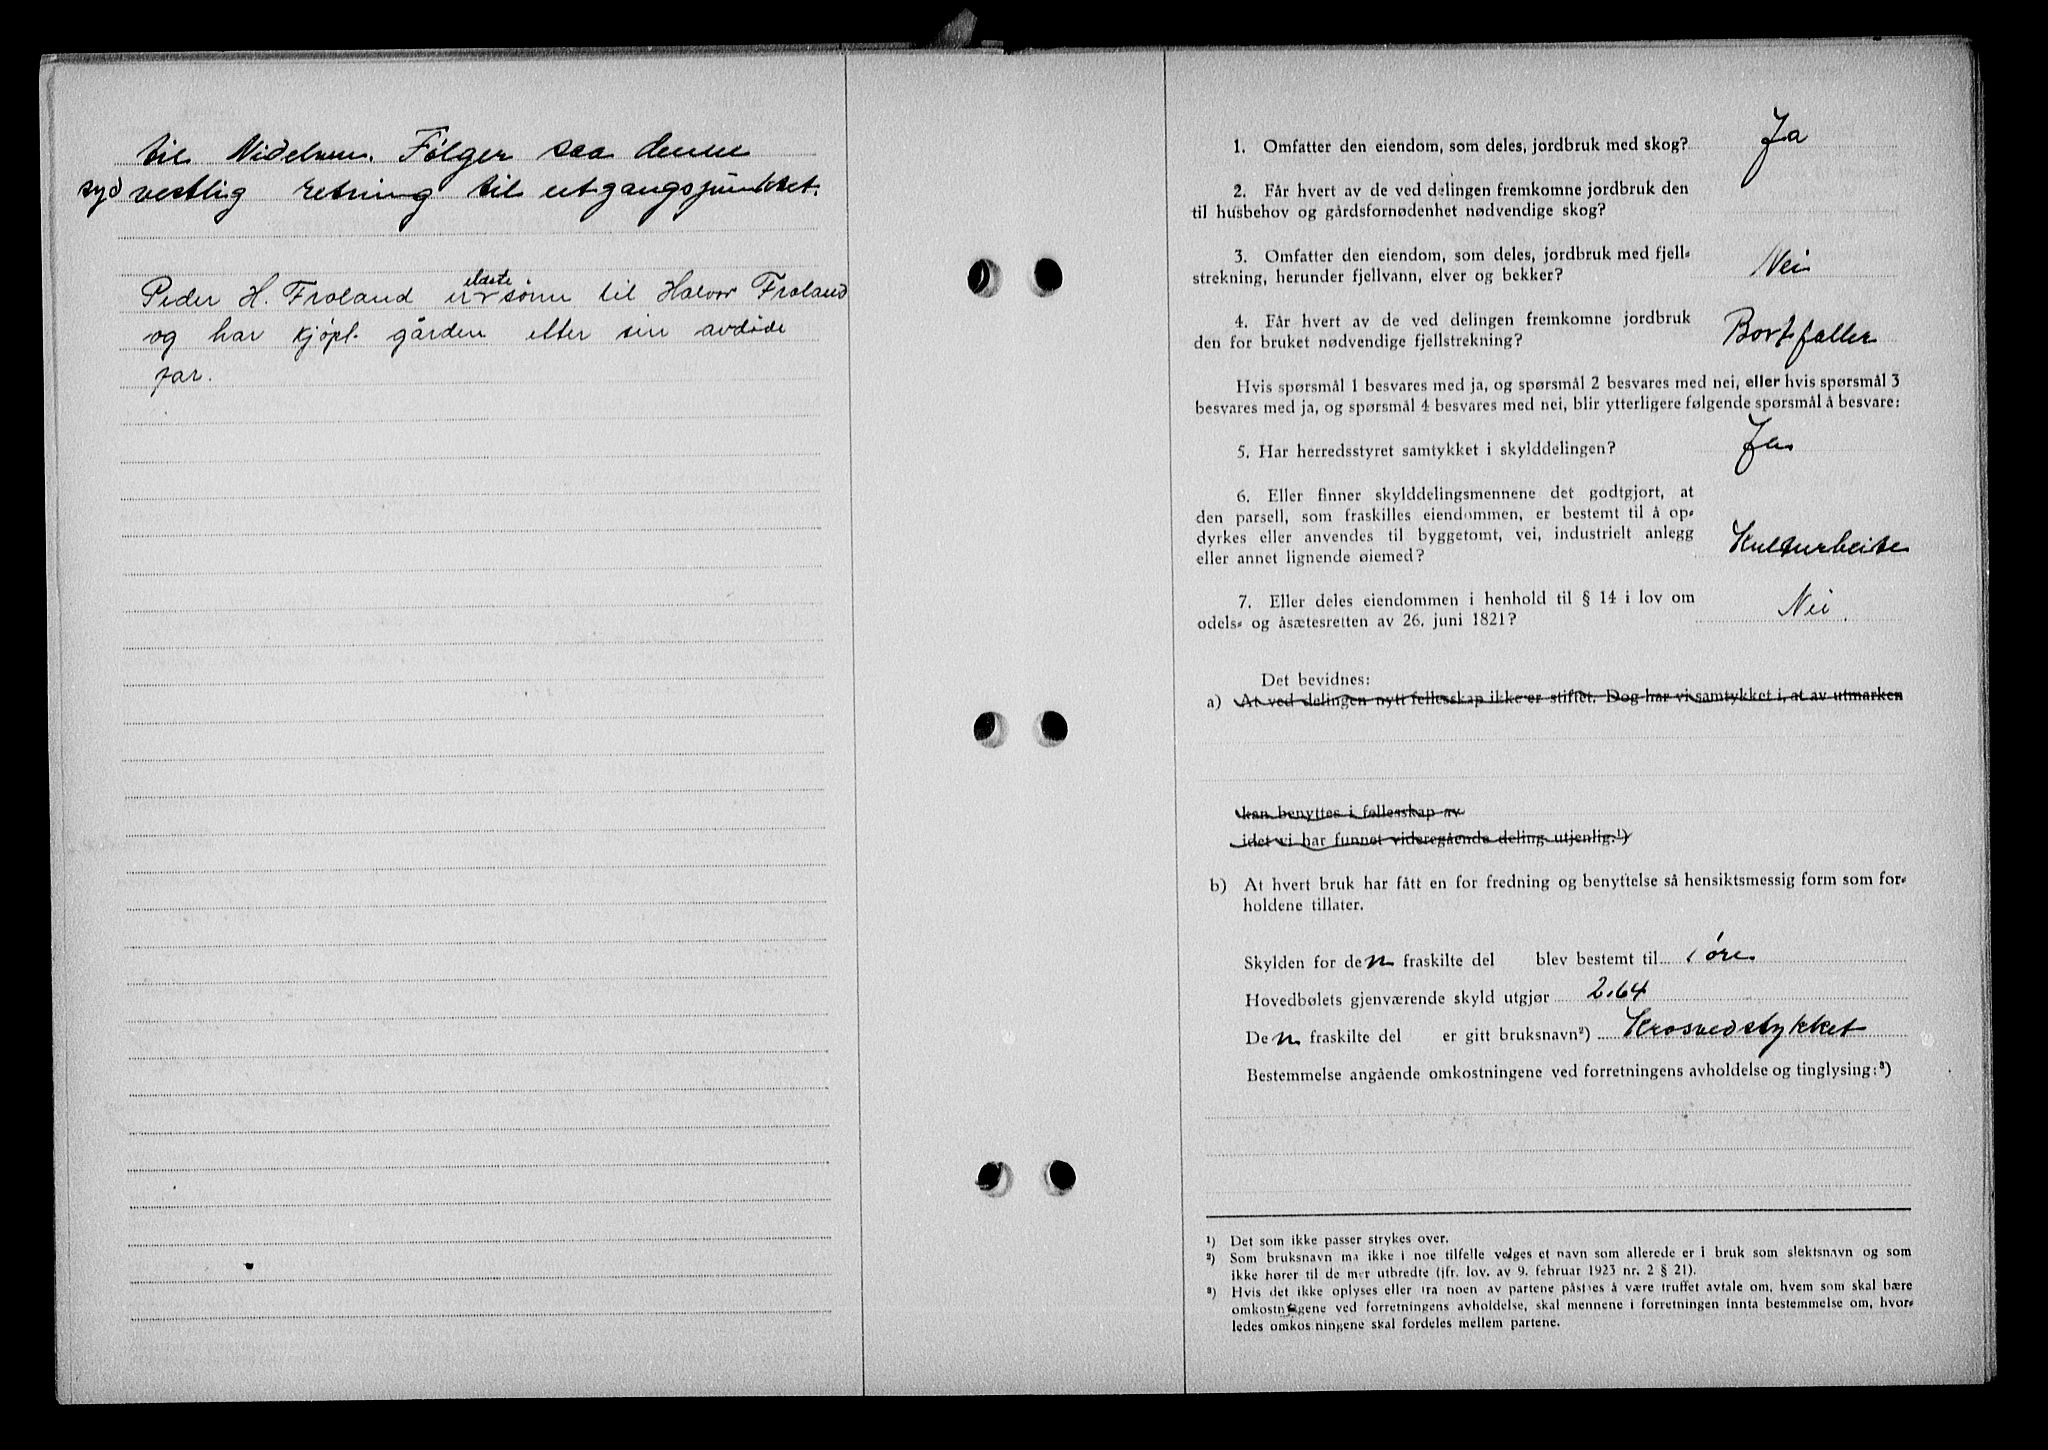 til Nidelven. Følger saa denne
syd vestlig retning til utgangspunktet.
Peder H. Froland er eldste sønn til Halvor Froland
og har kjøpt gården etter sin avdøde
far.
1. Omfatter den eiendom, som deles, jordbruk med skog? Ja
2. Får hvert av de ved delingen fremkomne jordbruk den
til husbehov og gårdsfornødenhet nødvendige skog?
3. Omfatter den eiendom, som deles, jordbruk med fjell-
strekning, herunder fjellvann, elver og bekker? Nei
4. Får hvert av de ved delingen fremkomne jordbruk
den for bruket nødvendige fjellstrekning? Bortfaller
Hvis spørsmål 1 besvares med ja, og spørsmål 2 besvares med nei, eller hvis spørsmål 3
besvares med ja, og spørsmål 4 besvares med nei, blir ytterligere følgende spørsmål å besvare:
5. Har herredsstyret samtykket i skylddelingen? Ja
6. Eller finner skylddelingsmennene det godtgjort, at
den parsell, som fraskilles eiendommen, er bestemt til å op-
dyrkes eller anvendes til byggetomt, vei, industrielt anlegg
eller annet lignende øiemed? Kulturbeite
7. Eller deles eiendommen i henhold til § 14 i lov om
odels- og åsætesretten av 26. juni 1821? Nei
Det bevidnes:
a) At ved delingen nytt fellesskap ikke er stiftet. Dog har vi samtykket i, at av utmarken
kan benyttes i fellesskap av
idet vi har funnet videregående deling utjenlig.¹)
b) At hvert bruk har fått en for fredning og benyttelse så hensiktsmessig form som for-
holdene tillater.
Skylden for den fraskilte del blev bestemt til 1 øre
Hovedbølets gjenværende skyld utgjør 2.64
Den fraskilte del er gitt bruksnavn²) Krosvedstykket
Bestemmelse angående omkostningene ved forretningens avholdelse og tinglysing:³)
¹) Det som ikke passer strykes over.
²) Som bruksnavn ma ikke i noe tilfelle velges et navn som allerede er i bruk som slektsnavn og som
ikke hører til de mer utbredte (jfr. lov. av 9. februar 1923 nr. 2 § 21).
³) Hvis det ikke oplyses eller fra noen av partene påstaes å være truffet avtale om, hvem som skal bære
omkostningene ved forretningens avholdelse, skal mennene i forretningen innta bestemmelse om, hvor-
ledes omkostningene skal fordeles mellem partene.